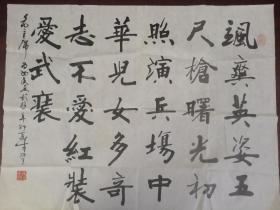 颯爽英姿五
尺槍曙光初
照演兵塲中
華兒女多奇
志不愛紅裝
愛武裝
毛主席